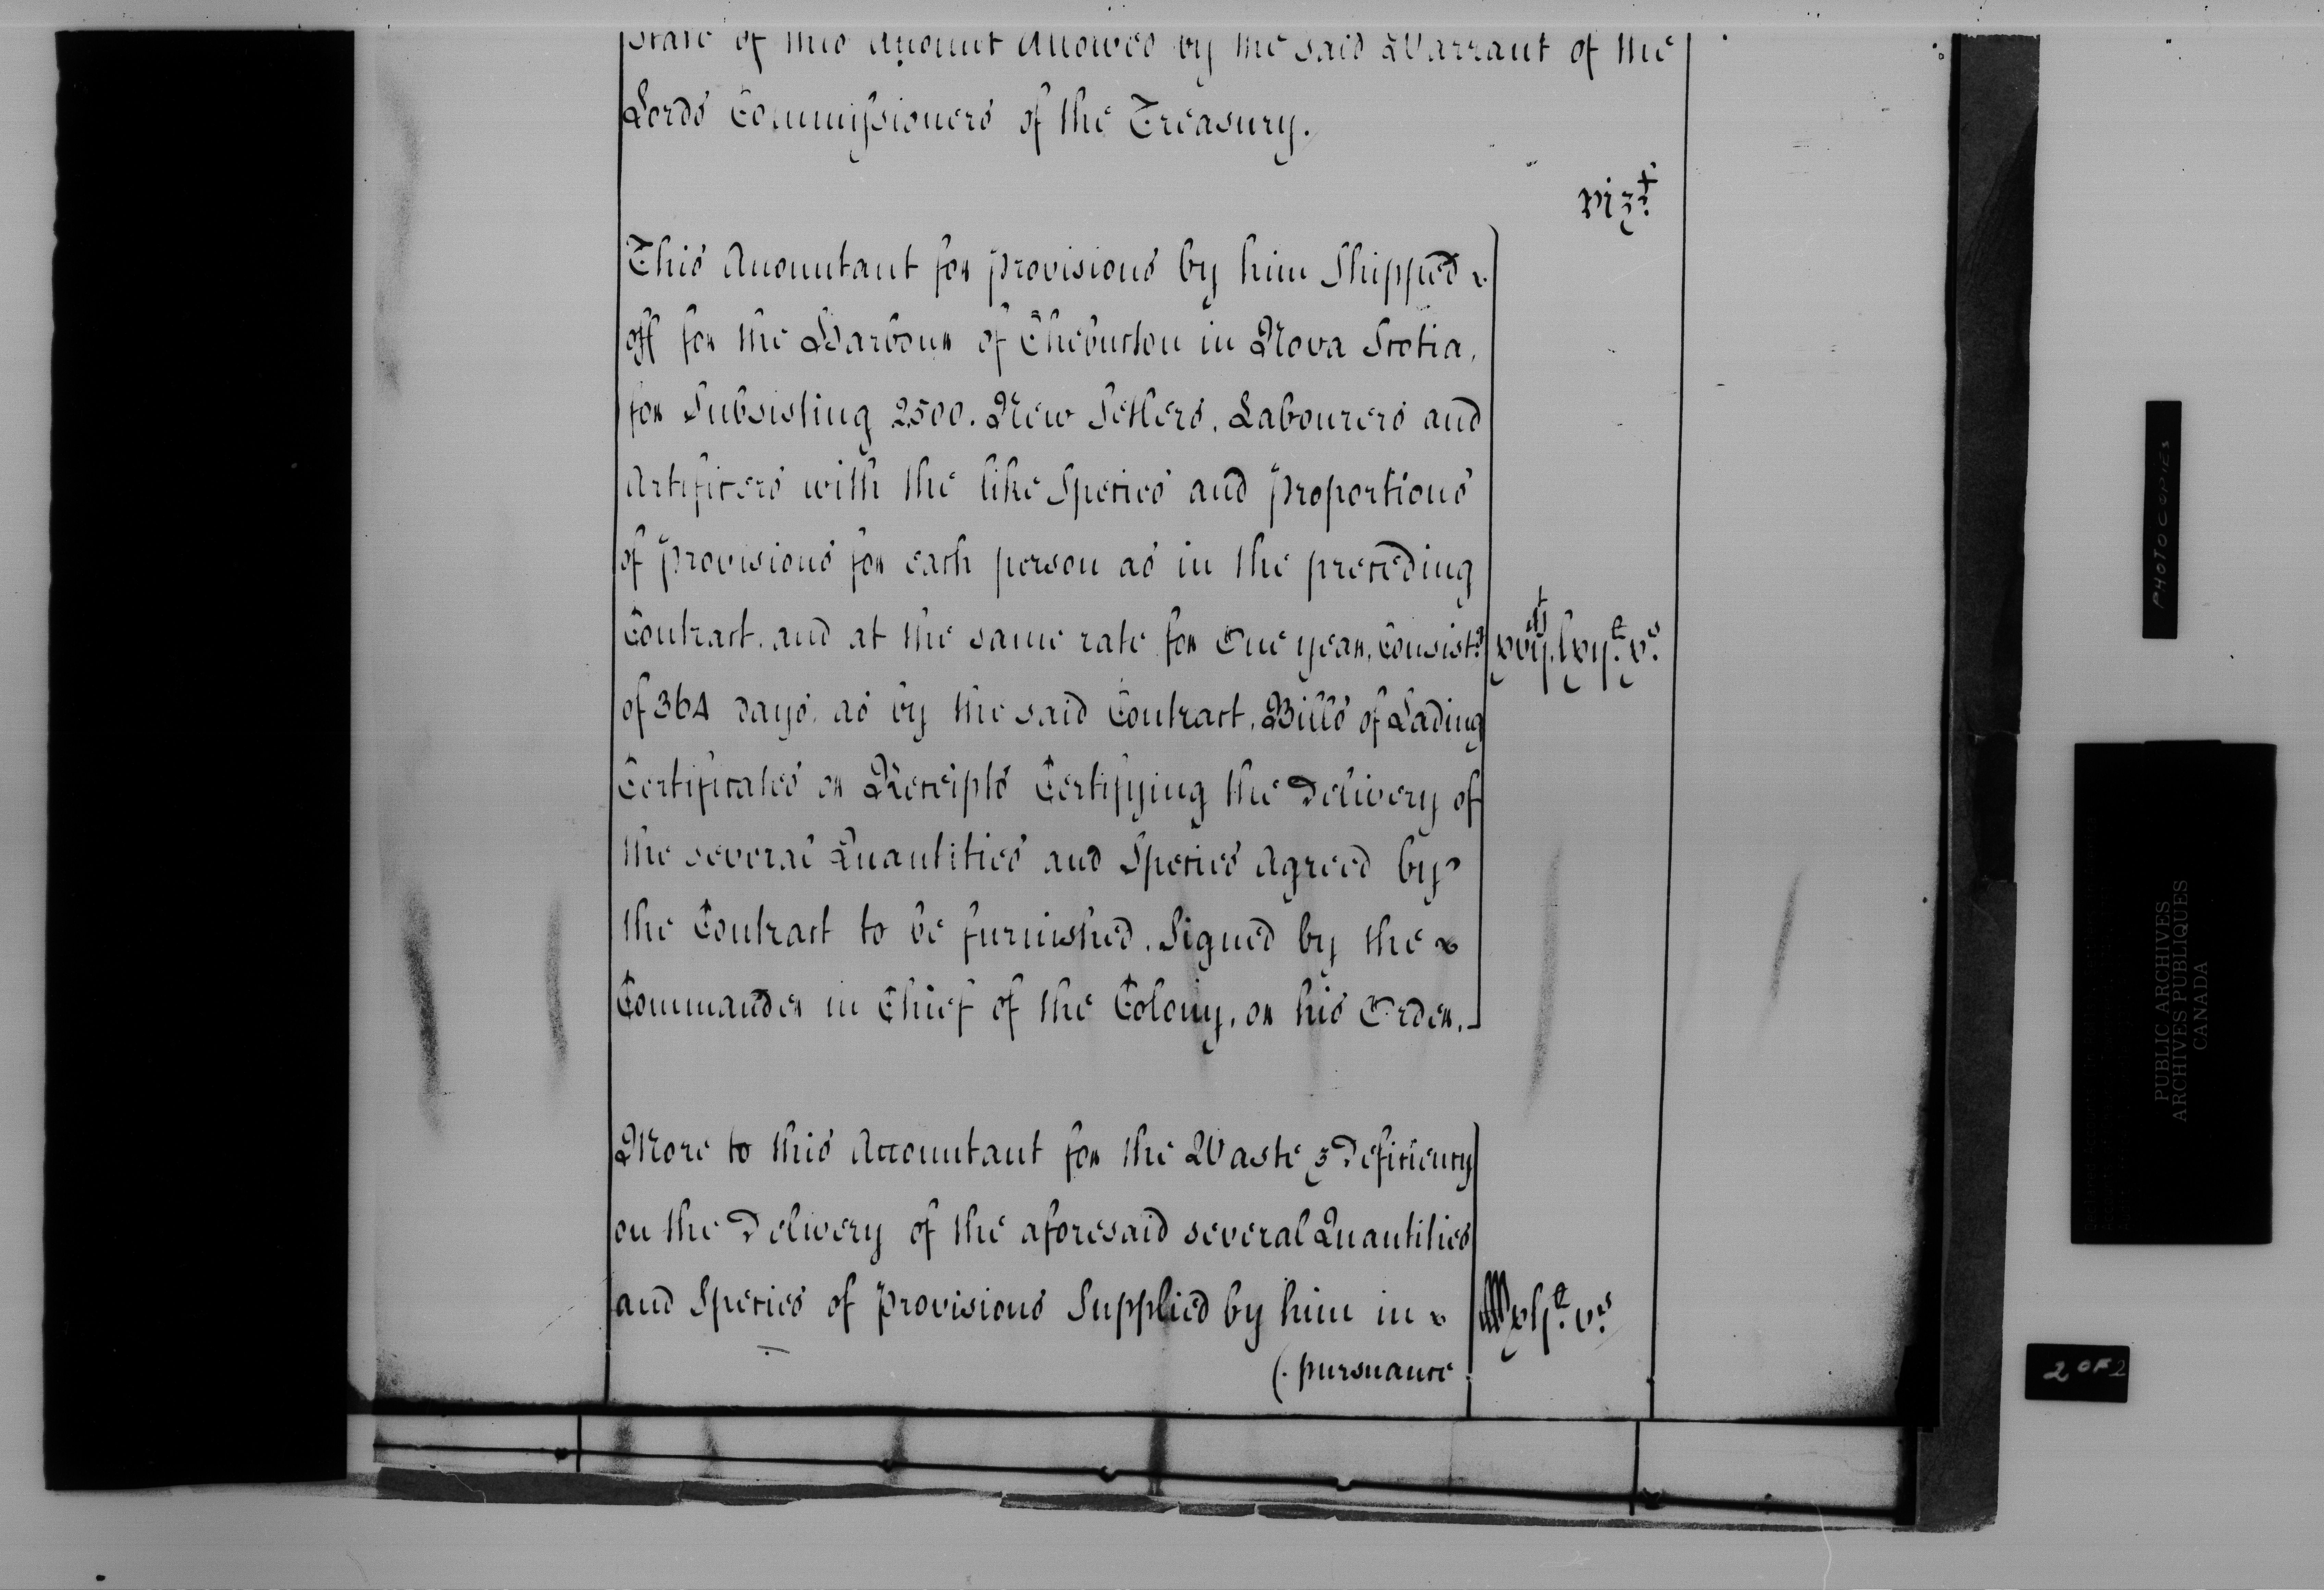 State of this Account allowed by the said Warrant of the
Lords Commissioners of the Treasury.
vizt.
This Accountant for provisions by him Shipped
off for the Harbour of Chebucton in Nova Scotia,
for Subsisting 2500. New Setlers, Labourers and
Artificers with the like Species and proportions
of provisions for each person as in the preceding
Contract, and at the same rate for One year, Consist.g
of 364 days, as by the said Contract, Bills of Lading
Certificates or Receipts Certifying the Delivery of
the several Quantities and Species Agreed by
the Contract to be furnished, Signed by the
Commander in Chief of the Colony, or his Order.
More to this Accountant for the Waste & Deficiency
on the Delivery of the aforesaid several Quantities
and Species of provisions Supplied by him in
(. pursuance
PHOTOCOPIES
PUBLIC ARCHIVES
ARCHIVES PUBLIQUES
CANADA
2 OF 2